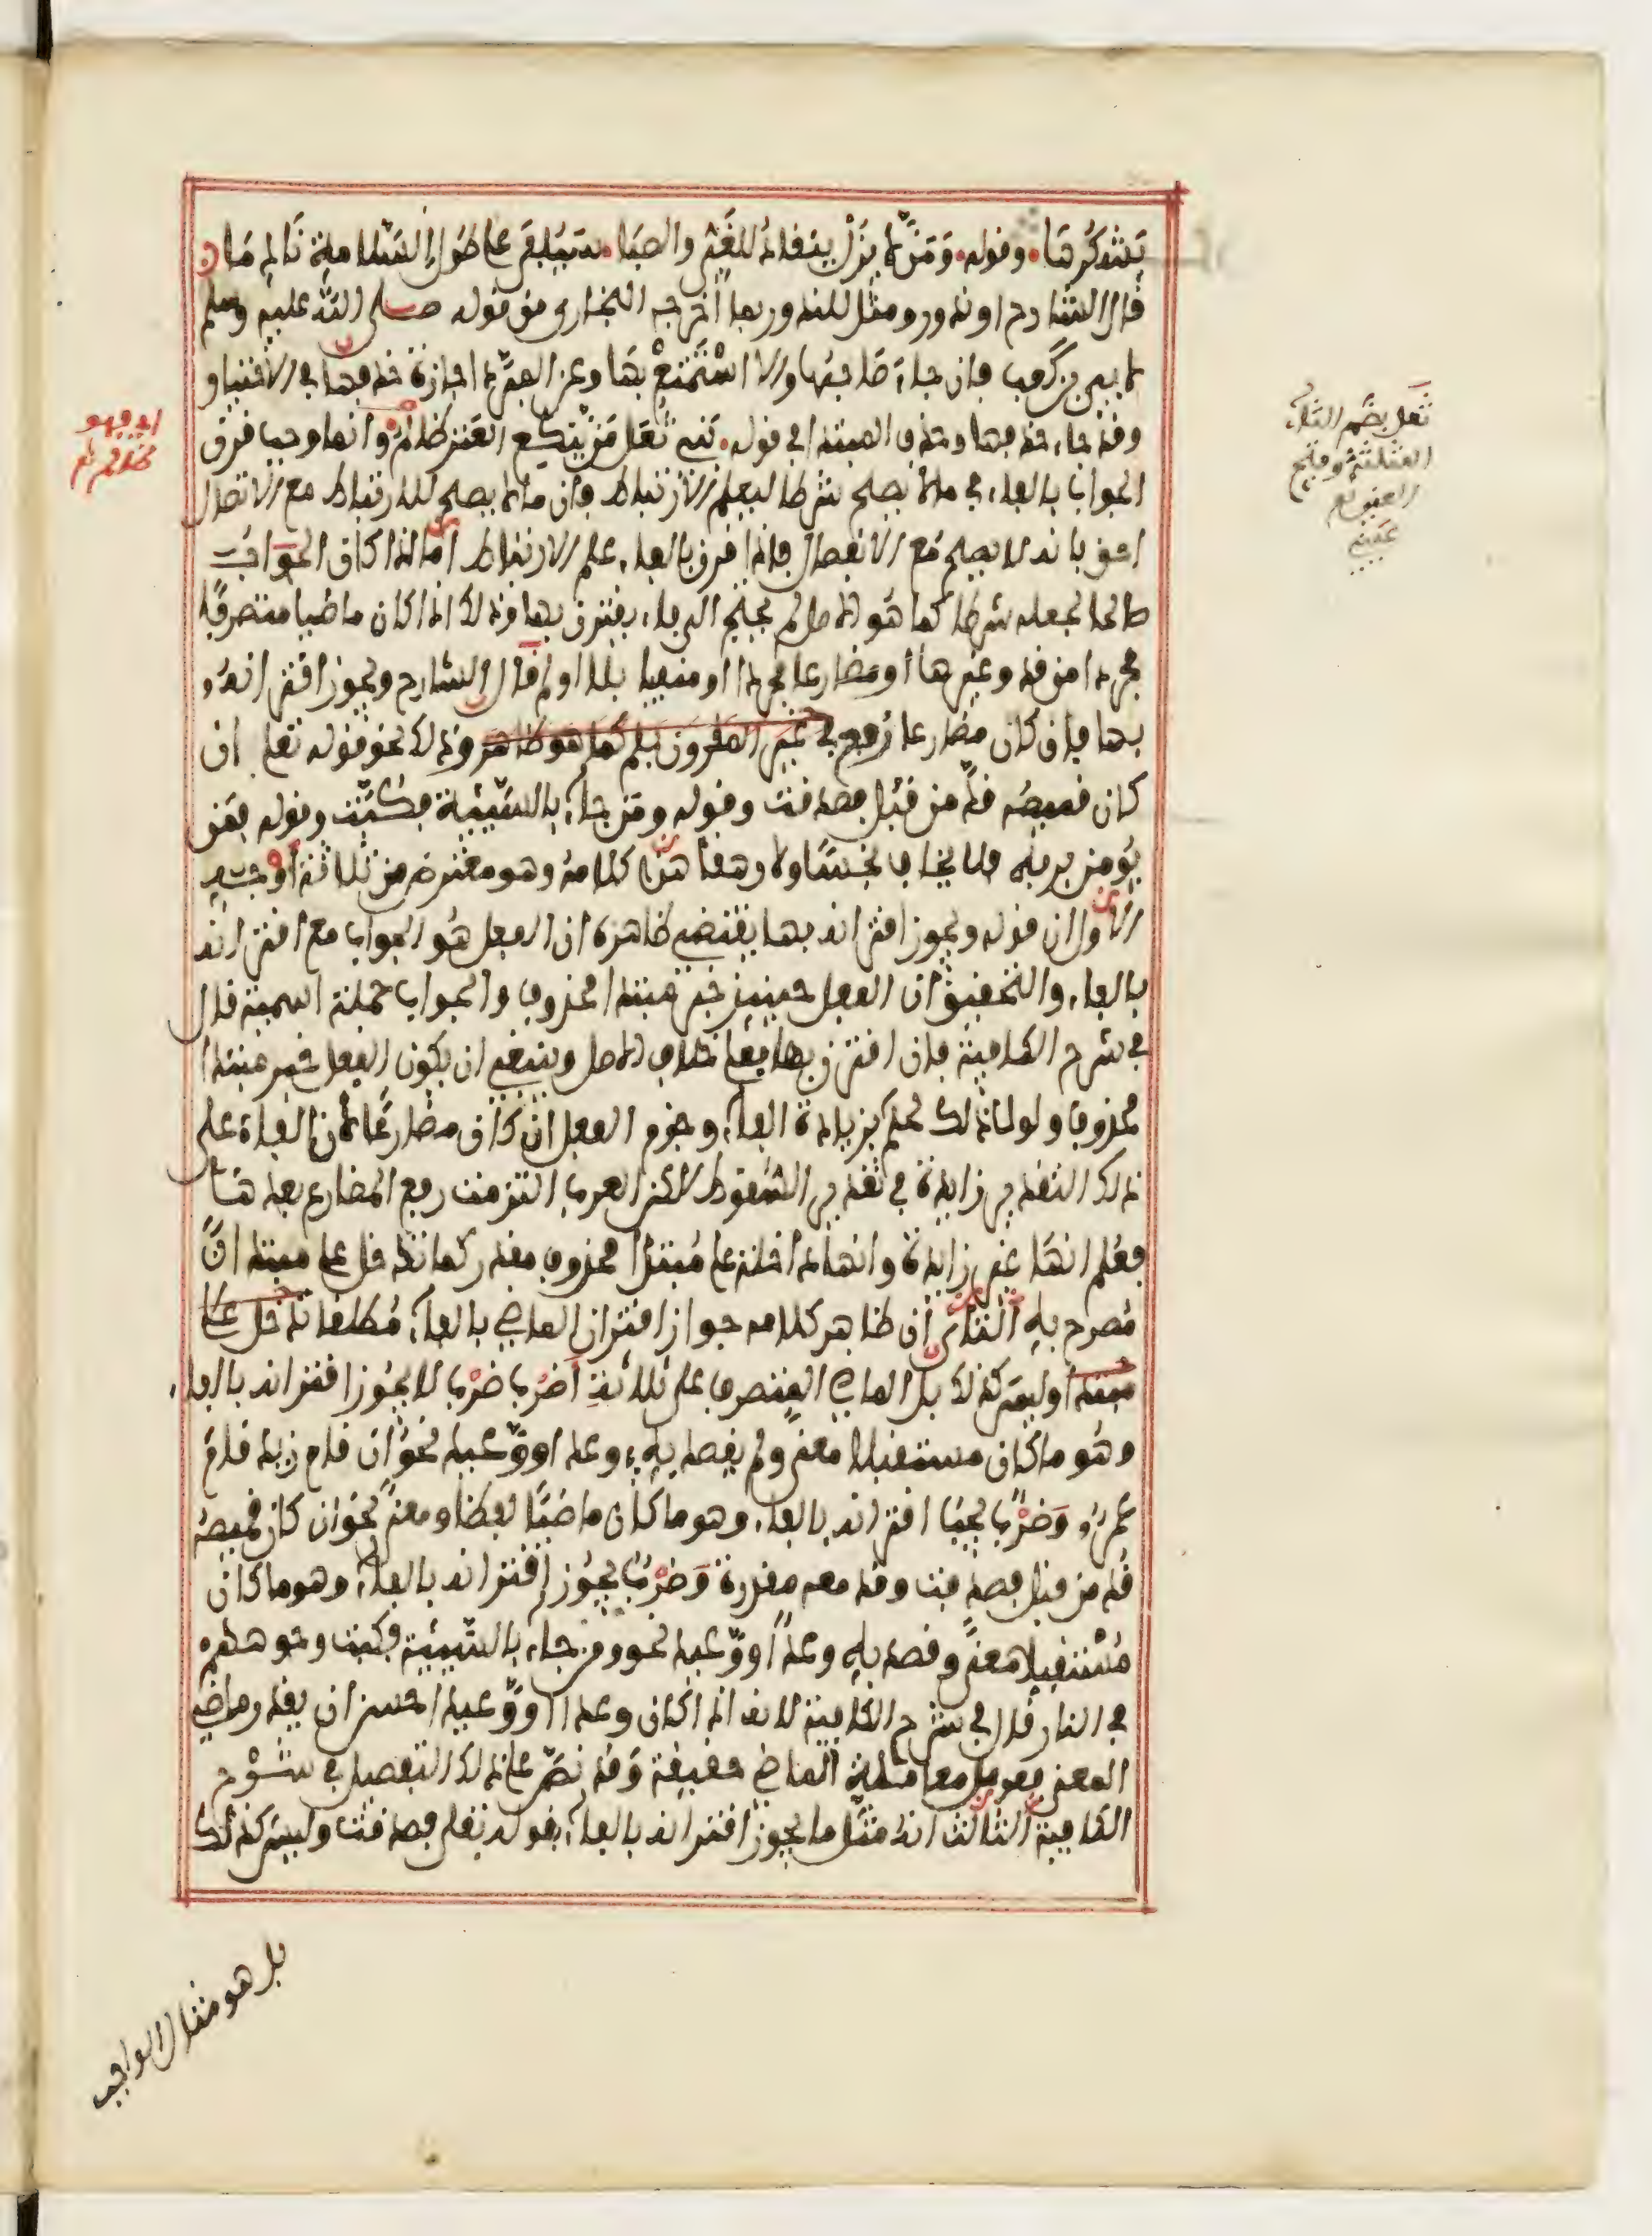 يشكرها وقوله ومن لا يزل ينقاد للغي والصبا سيلفى على طول السلامة نادما
قال الشارح او ندور ومثل للندور بما اخرجه البخاري من قوله صلى الله عليه وسلم
لابي بن كعب فإن جاء صاحبها والا استمتع بها وعن المبرد اجازة حذفها في الاختيار
وقد جاء حذفها وحذف المبتدا في قوله بني ثعل من ينكع العنز ظالم وانما وجب قرن
الجواب بالفاء في ما لا يصلح شرطا ليعلم الارتباط فإن ما لا يصلح للارتباط مع الاتصال
احق بانه لا يصلح مع الانفصال فاذا قرن بالفاء علم الارتباط اما اذا كان الجواب
صالحا لجعله شرطا كما هو الاصل لم يحتج الى فاء يقترن بها وذلك اذا كان ماضيا متصرفا
مجردا من قد وغيرها او مضارعا مجردا او منفيا بلا او لم قال الشارح ويجوز اقترانه
بها فإن كان مضارعا رفع في غير المقرون بلم كما هو ظاهر وذلك نحو قوله تعلى إن
كان قميصه قد من قبل فصدقت وقوله ومن جاء بالسيئة فكبت وقوله فمن
يؤمن بربه فلا يخاف بخسا ولا رهقا هذا كلامه وهو معترض من ثلاثة اوجه
الاول ان قوله ويجوز اقترانه بها يقتضي ظاهره ان الفعل هو الجواب مع اقترانه
بالفاء والتحقيق ان الفعل حينئذ خبر مبتدا محذوف والجواب جملة اسمية قال
في شرح الكافية فإن اقترن بها فعلى خلاف الاصل وينبغي ان يكون الفعل خبر مبتدا
محذوف ولولا ذلك لحكم بزيادة الفاء وجزم الفعل ان كان مضارعا لأن الفاء على
ذلك التقدير زايدة في تقدير السقوط لاكن العرب التزمت رفع المضارع بعدها
فعلم انها غير زايدة وانها داخلة على مبتدا محذوف مقدر كما تدخل على مبتدا
مصرح به الثاني ان ظاهر كلامه جواز اقتران الماضي بالفاء مطلقا تدخل على
مبتدا وليس كذلك بل الماضي المتصرف على ثلاثة اضرب ضرب لا يجوز اقترانه بالفاء
وهو ما كان مستقبلا معنى ولم يقصد به وعد او وعيد نحو ان قام زيد قام
عمرو وضرب يجب اقترانه بالفاء وهو ما كان ماضيا لفظا ومعنى نحو ان كان قميصه
قد من قبل فصدقت وقد معه مقدرة وضرب يجوز اقترانه بالفاء وهو ما كان
مستقبلا معنى وقصد به وعد او وعيد نحو ومن جاء بالسيئة فكبت وجوههم
في النار قال في شرح الكافية لانه اذا كان وعدا او وعيدا حسن ان يقدر ماضي
المعنى فعومل معاملة الماضي حقيقة وقد نص على ذلك التفصيل في شرح
الكافية الثالث انه مثل ما يجوز اقترانه بالفاء بقوله تعلى فصدقت وليس كذلك
بل هو مثال الواجب
ثعل بضم الثاء
المثلثة وفتح
اي فهو
ظالم